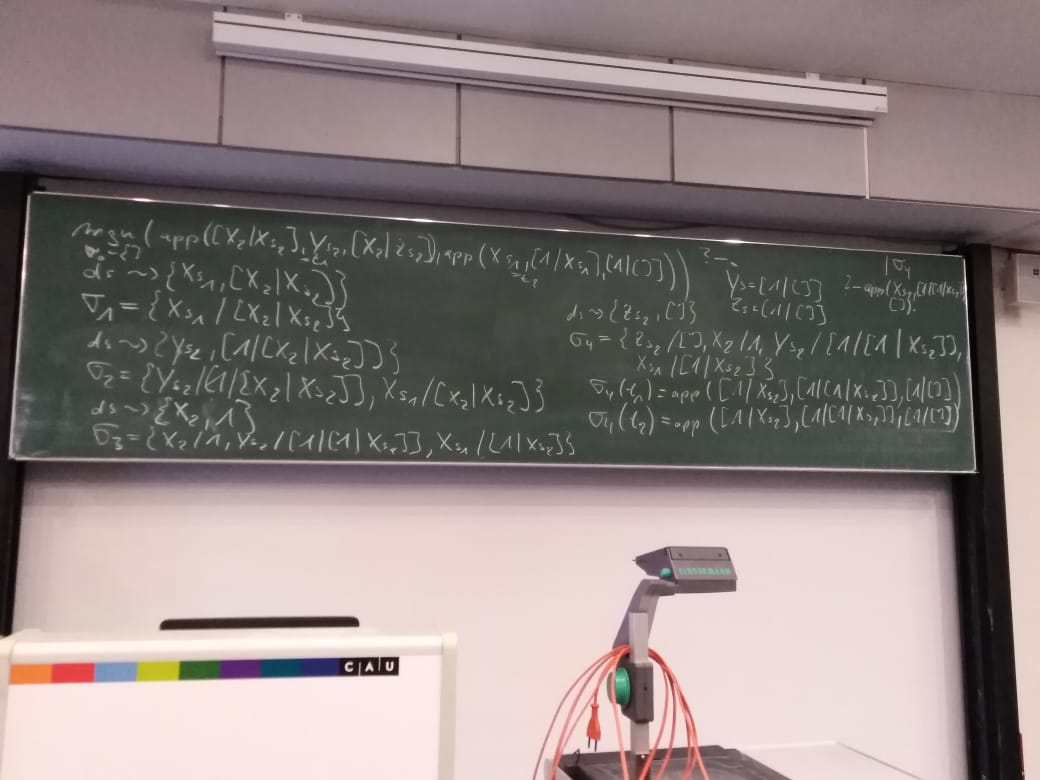 mgu(app([X₂|Xs₂],Ys₂,[X₂|Zs₂]),app(Xs₁,[1|Xs₁],[1|[]]))
σ₀={}
ds ⇝ {Xs₁,[X₂|Xs₂]}
σ₁={Xs₁/[X₂|Xs₂]}
ds ⇝ {Ys₂,[1|[X₂|Xs₂]]}
σ₂={Ys₂/[1|[X₂|Xs₂]],Xs₁/[X₂|Xs₂]}
ds ⇝ {X₂,1}
σ₃={X₂/1,Ys₂/[1|[1|Xs₂]],Xs₁/[1|Xs₂]}
?-
Ys=[1|[]]
Zs=[1|[]]
|σ₄
?-app(Xs₂,[1|[1|Xs₂]],
[]).
ds ⇝ {Zs₂,[]}
σ₄={Zs₂/[],X₂/1,Ys₂/[1|[1|Xs₂]],
Xs₁/[1|Xs₂]}
σ₄(t₁)=app([1|Xs₂],[1|[1|Xs₂]],[1|[]])
σ₄(t₂)=app([1|Xs₂],[1|[1|Xs₂]],[1|[]])
KINDERMANN
C|A|U